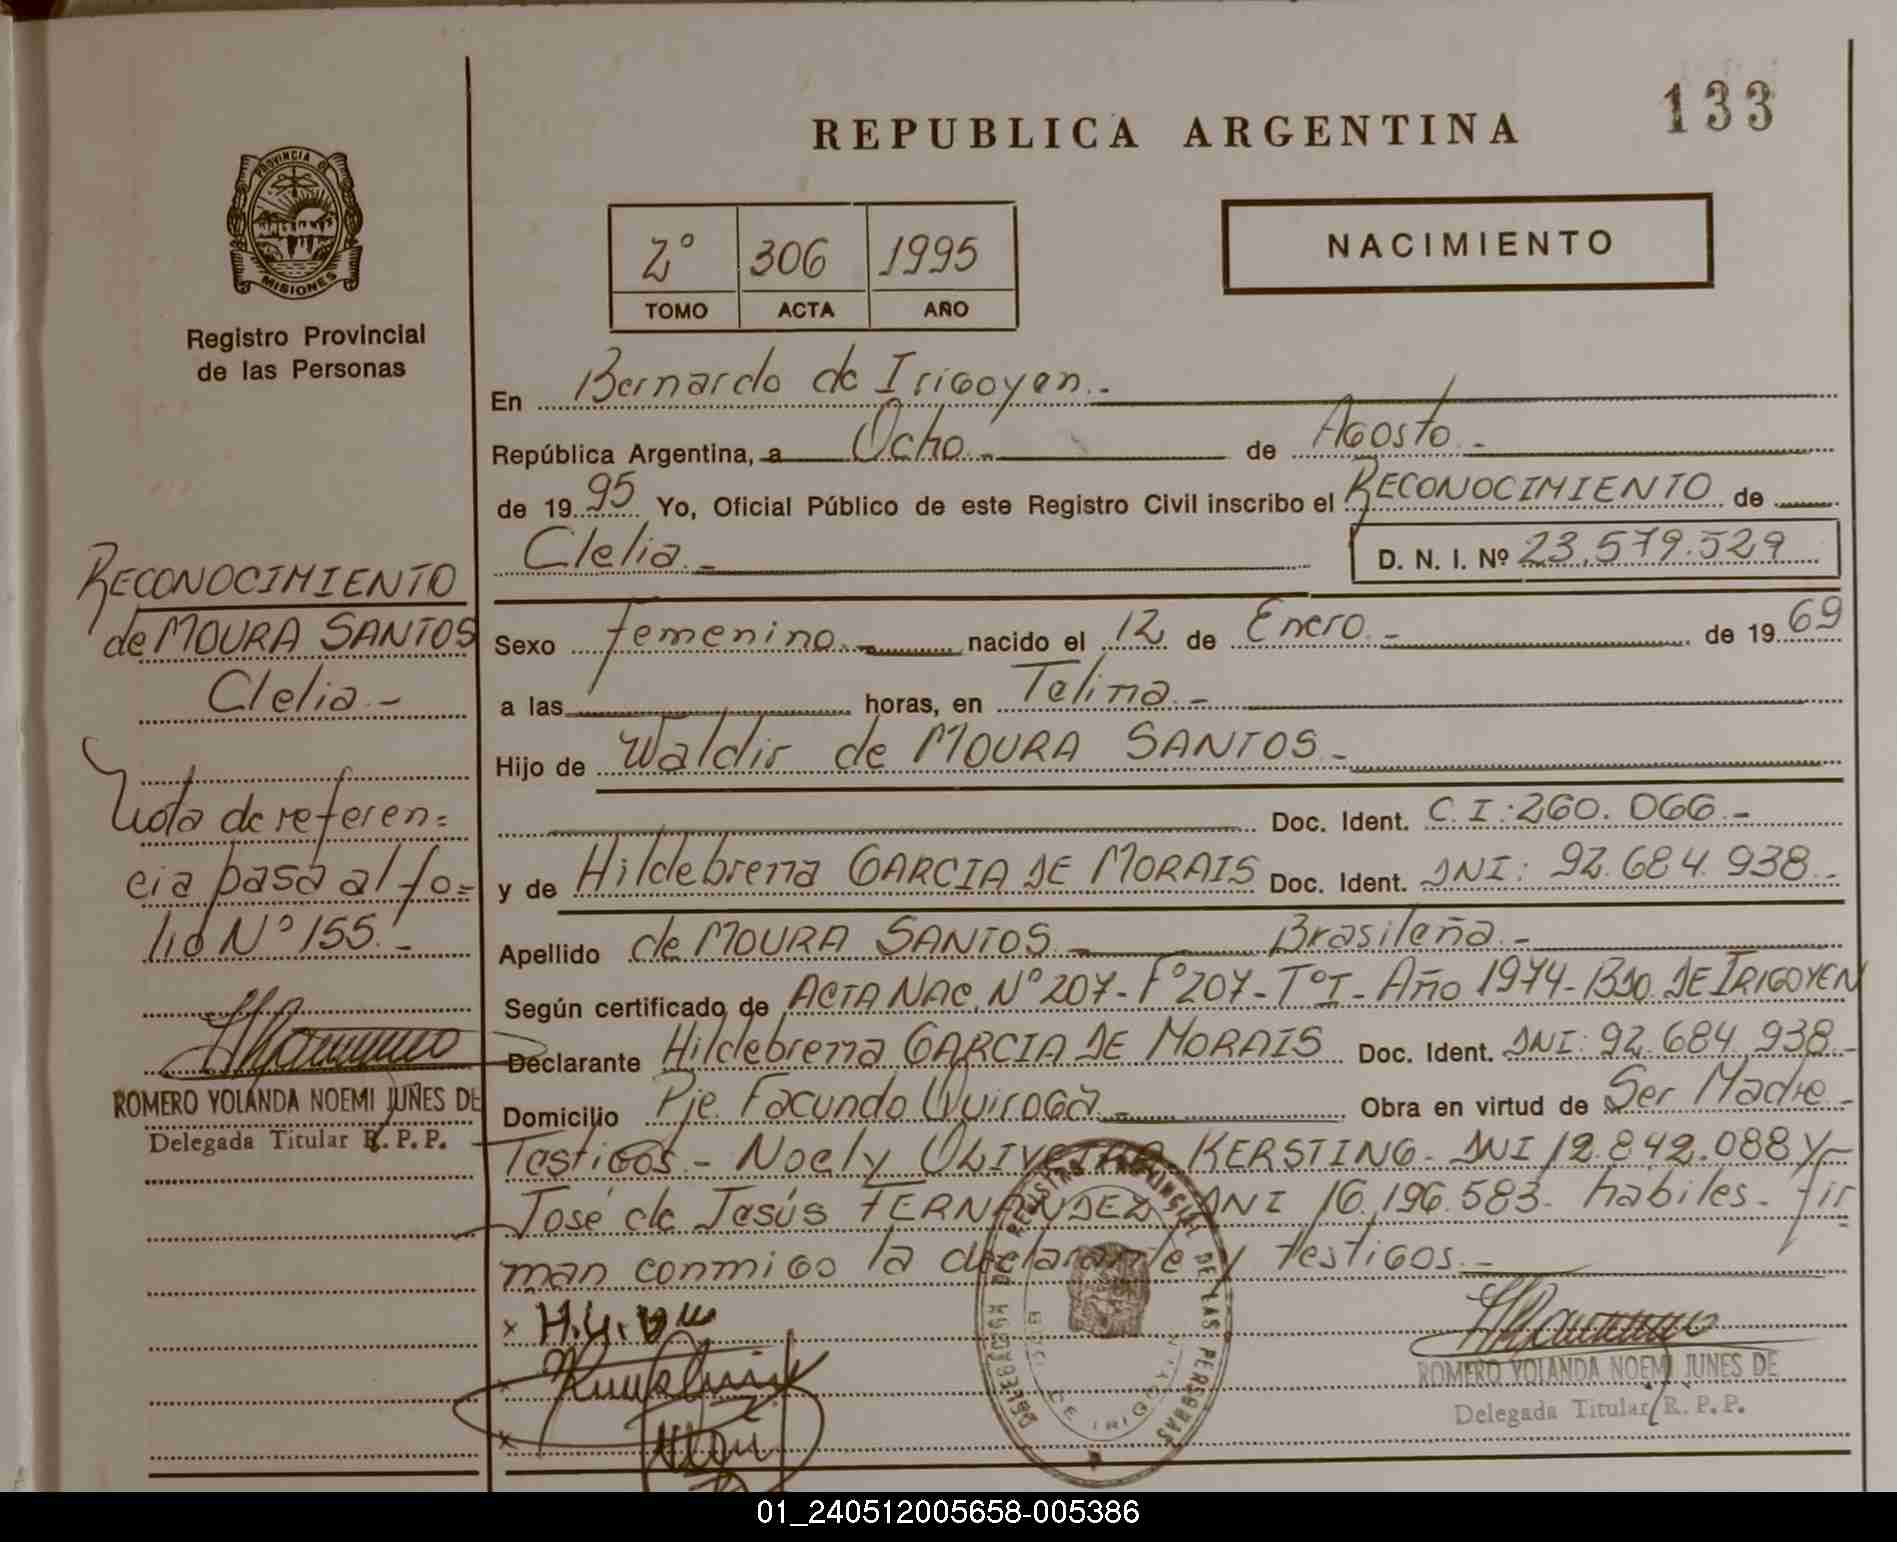 133
REPUBLICA ARGENTINA
PROVINCIA DE
MISIONES
Registro Provincial
de las Personas
2° 306 1995
TOMO ACTA AÑO
NACIMIENTO
En Bernardo de Irigoyen.-
República Argentina, a Ocho.- de Agosto.-
de 1995 Yo, Oficial Público de este Registro Civil inscribo el RECONOCIMIENTO de
Clelia.- D. N. I. Nº 23.579.529
Sexo femenino.- nacido el 12 de Enero.- de 1969
a las horas, en
Hijo de Waldir de MOURA SANTOS.-
Doc. Ident. C.I: 260.066.-
y de GARCIA DE MORAIS Doc. Ident. DNI: 92.684.938.-
Apellido de MOURA SANTOS.- Brasileña.-
Según certificado de ACTA NAC. Nº 207- Fº 207- Tº I- Año 1974- BDO. DE IRIGOYEN
Declarante GARCIA DE MORAIS Doc. Ident. DNI: 92.684.938.-
Domicilio Pje. Facundo Quiroga.- Obra en virtud de Ser Madre.-
Testigos.- Noely OLIVEIRA KERSTING- DNI 12.842.088 y-
José de Jesús FERNANDEZ, DNI 16.196.583- habiles- fir
man conmigo la declarante y testigos.-
RECONOCIMIENTO
de MOURA SANTOS
Clelia.-
Nota de referen=
cia pasa al fo=
lio Nº 155.-
ROMERO YOLANDA NOEMI JUNES DE
Delegada Titular R. P. P.
x
x
x
REGISTRO PROVINCIAL DE LAS PERSONAS
DE IRIGOYEN
ROMERO YOLANDA NOEMI JUNES DE
Delegada Titular R. P. P.
01_240512005658-005386